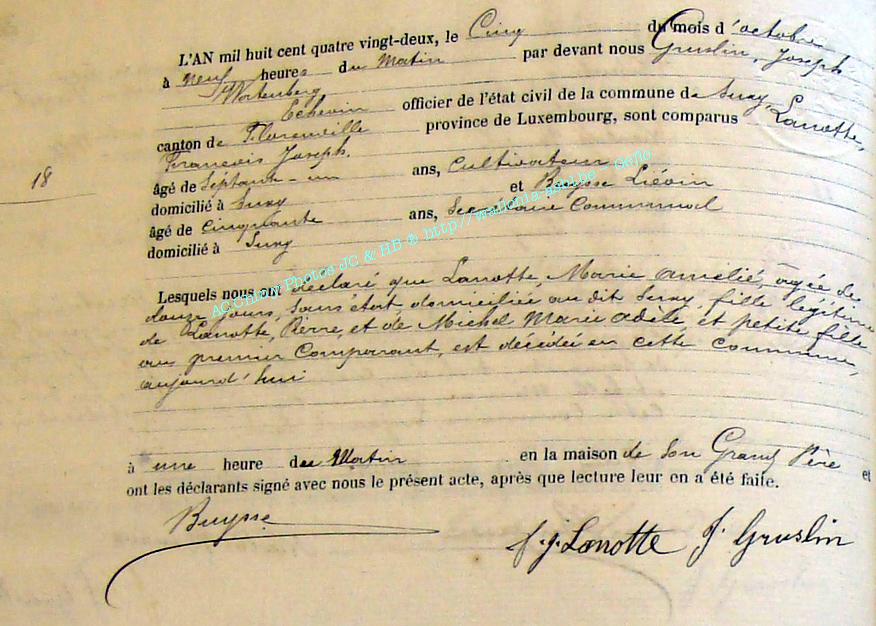 L'AN mil huit cent quatre vingt-deux, le Cinq du mois d'octobre
à neuf heures du Matin par devant nous Gruslin, Joseph
Echevin officier de l'état civil de la commune de Suxy,
canton de Florenville province de Luxembourg, sont comparus Lanotte,
18
François Joseph,
âgé de Septante-un ans, Cultivateur
domicilié à Suxy et Buysse Liévin
âgé de Cinquante ans, Secrétaire Communal
domicilié à Suxy
AC Chiny Photos JC & HB ® http//wallonia-asbl.be -
Lesquels nous ont déclaré que Lanotte, Marie Amélié, agée de
douze jours, sans état domiciliée au dit Suxy, fille légitime
de Lanotte, Pierre, et de Michel Marie Adèle, et petite fille
au premier Comparant, est décédée en cette commune,
aujourd'hui
à une heure du Matin en la maison de son Grand Père et
ont les déclarants signé avec nous le présent acte, après que lecture leur en a été faite.
Buysse
f.j. Lanotte J. Gruslin